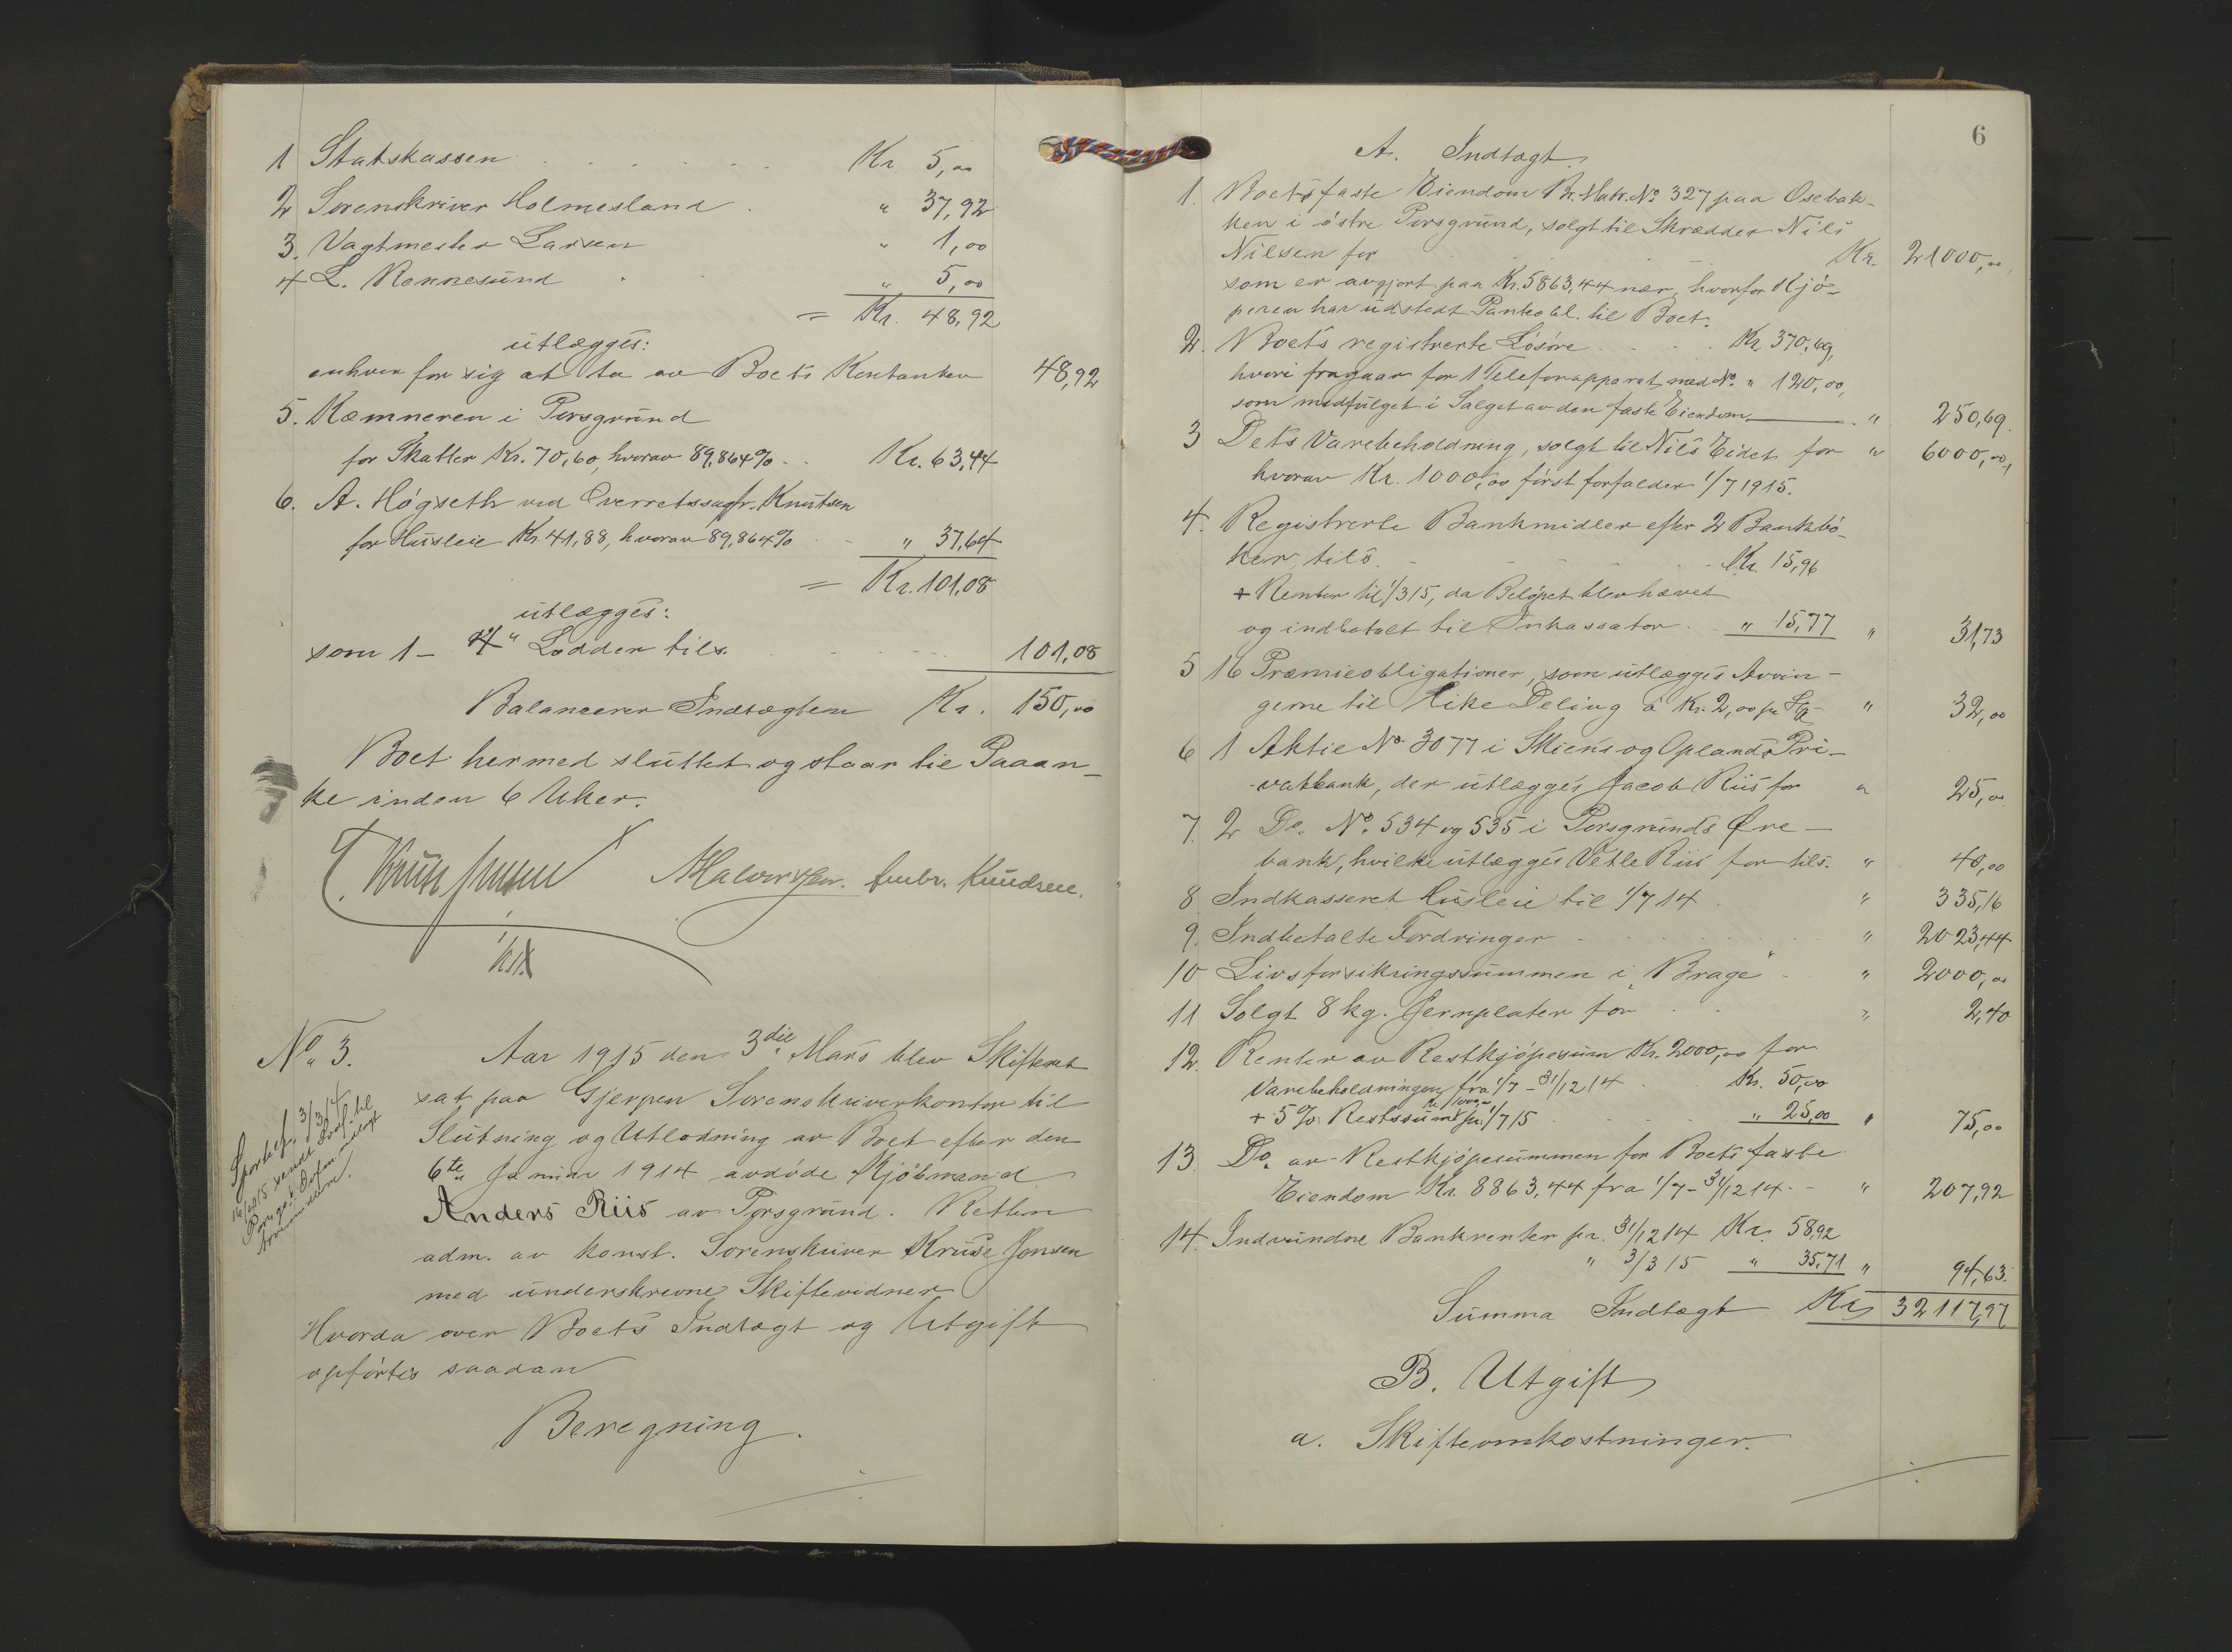 1 Statskassen . . . . . . Kr. 5,00
2 Sorenskriver Holmesland . " 37,92
3. Vagtmester Larsen " 1,00
4 L. Rennesund . " 5,00
= Kr. 48,92
utlægges:
enhver for sig at ta av Boets Kontanter 48,92
5. Kæmneren i Porsgrund
for Skatter Kr. 70,60, hvorav 89,864% . . Kr. 63,44
6. A. Høgseth ved Overretssagfr. Knutsen
for Husleie Kr. 41,88, hvorav 89,864% . . " 37,64
= Kr. 101,08
utlægges:
som 1 - Lodder tils. . . . . 101,08
Balancerer Indtægten Kr. 150,00
Boet hermed sluttet og staar til Paaan-
ke inden 6 Uker.
Kruse Jensen Halvorsen. Ambr. Knudsen.
kst.
No. 3. Aar 1915 den 3die Mars blev Skifteret
sat paa Gjerpen Sorenskriverkontor til
Slutning og Utlodning av Boet efter den
6te Januar 1914 avdøde Kjøbmand
Anders Riis av Porsgrund. Retten
adm. av konst. Sorenskriver Kruse Jensen
med underskrevne Skiftevidner
Hvorda over Boets Indtægt og Utgift
opførtes saadan
Beregning.
6
A. Indtægt.
1. Boets faste Eiendom Br. Matr. No 327 paa Osebak-
ken i østre Porsgrund, solgt til Skrædder Nils
Nilsen for . . . . Kr. 21000,00,
som er avgjort paa Kr. 5863,44 nær, hvorfor Kjø-
peren har utstedt Panteobl. til Boet.
2. Boets registrerte Løsøre . . . . Kr. 370,69,
hvori fragaar for 1 Telefonapparat med No. " 120,00,
som medfulget i Salget av den faste Eiendom " 250,69.
3 Dets Varebeholdning, solgt til Nils Eidet for " 6000,00,
hvorav Kr. 1000,00 først forfalder 1/7 1915.
4. Registrerte Bankmidler efter 2 Bankbø-
ker, tils. . . . Kr. 15,96
+ Renter til 1/3 15, da Beløpet blev hævet
og indbetalt til Inkassator . . " 15,77 " 31,73
5 16 Præmieobligationer, som utlægges Arvin-
gerne til like Deling á Kr. 2,00 pr. " 32,00
6 1 Aktie No. 3077 i Skiens og Oplands Pri-
vatbank, der utlægges Jacob Riis for " 25,00
7. 2 Do. No. 534 og 535 i Porsgrunds Øre-
bank, hvilke utlægges Vetle Riis for tils. " 40,00
8 Indkasseret Husleie til 1/7 14 . " 335,16
9. Indbetalte Fordringer . . . . " 2023,44
10 Livsforsikringssummen i "Brage" . " 2000,00
11 Solgt 8 kg. Jernplater for . . " 2,40
12. Renter av Restkjøpesum Kr. 2000,00 for
Varebeholdningen fra 1/7 - 31/12 14 . Kr. 50,00
+ 5% Restssum Kr. 1000,00 pr. 1/7 15 . . . " 25,00 " 75,00
13. Do. av Restkjøpesummen for Boets faste
Eiendom Kr. 8863,44 fra 1/7 - 31/12 14 . - " 207,92
14. Indvundne Bankrenter pr. 31/12 14 Kr. 58,92
" 3/3 15 " 35,71 " 94,63.
Summa Indtægt Kr. 32117,97
B. Utgift
a. Skifteomkostninger.